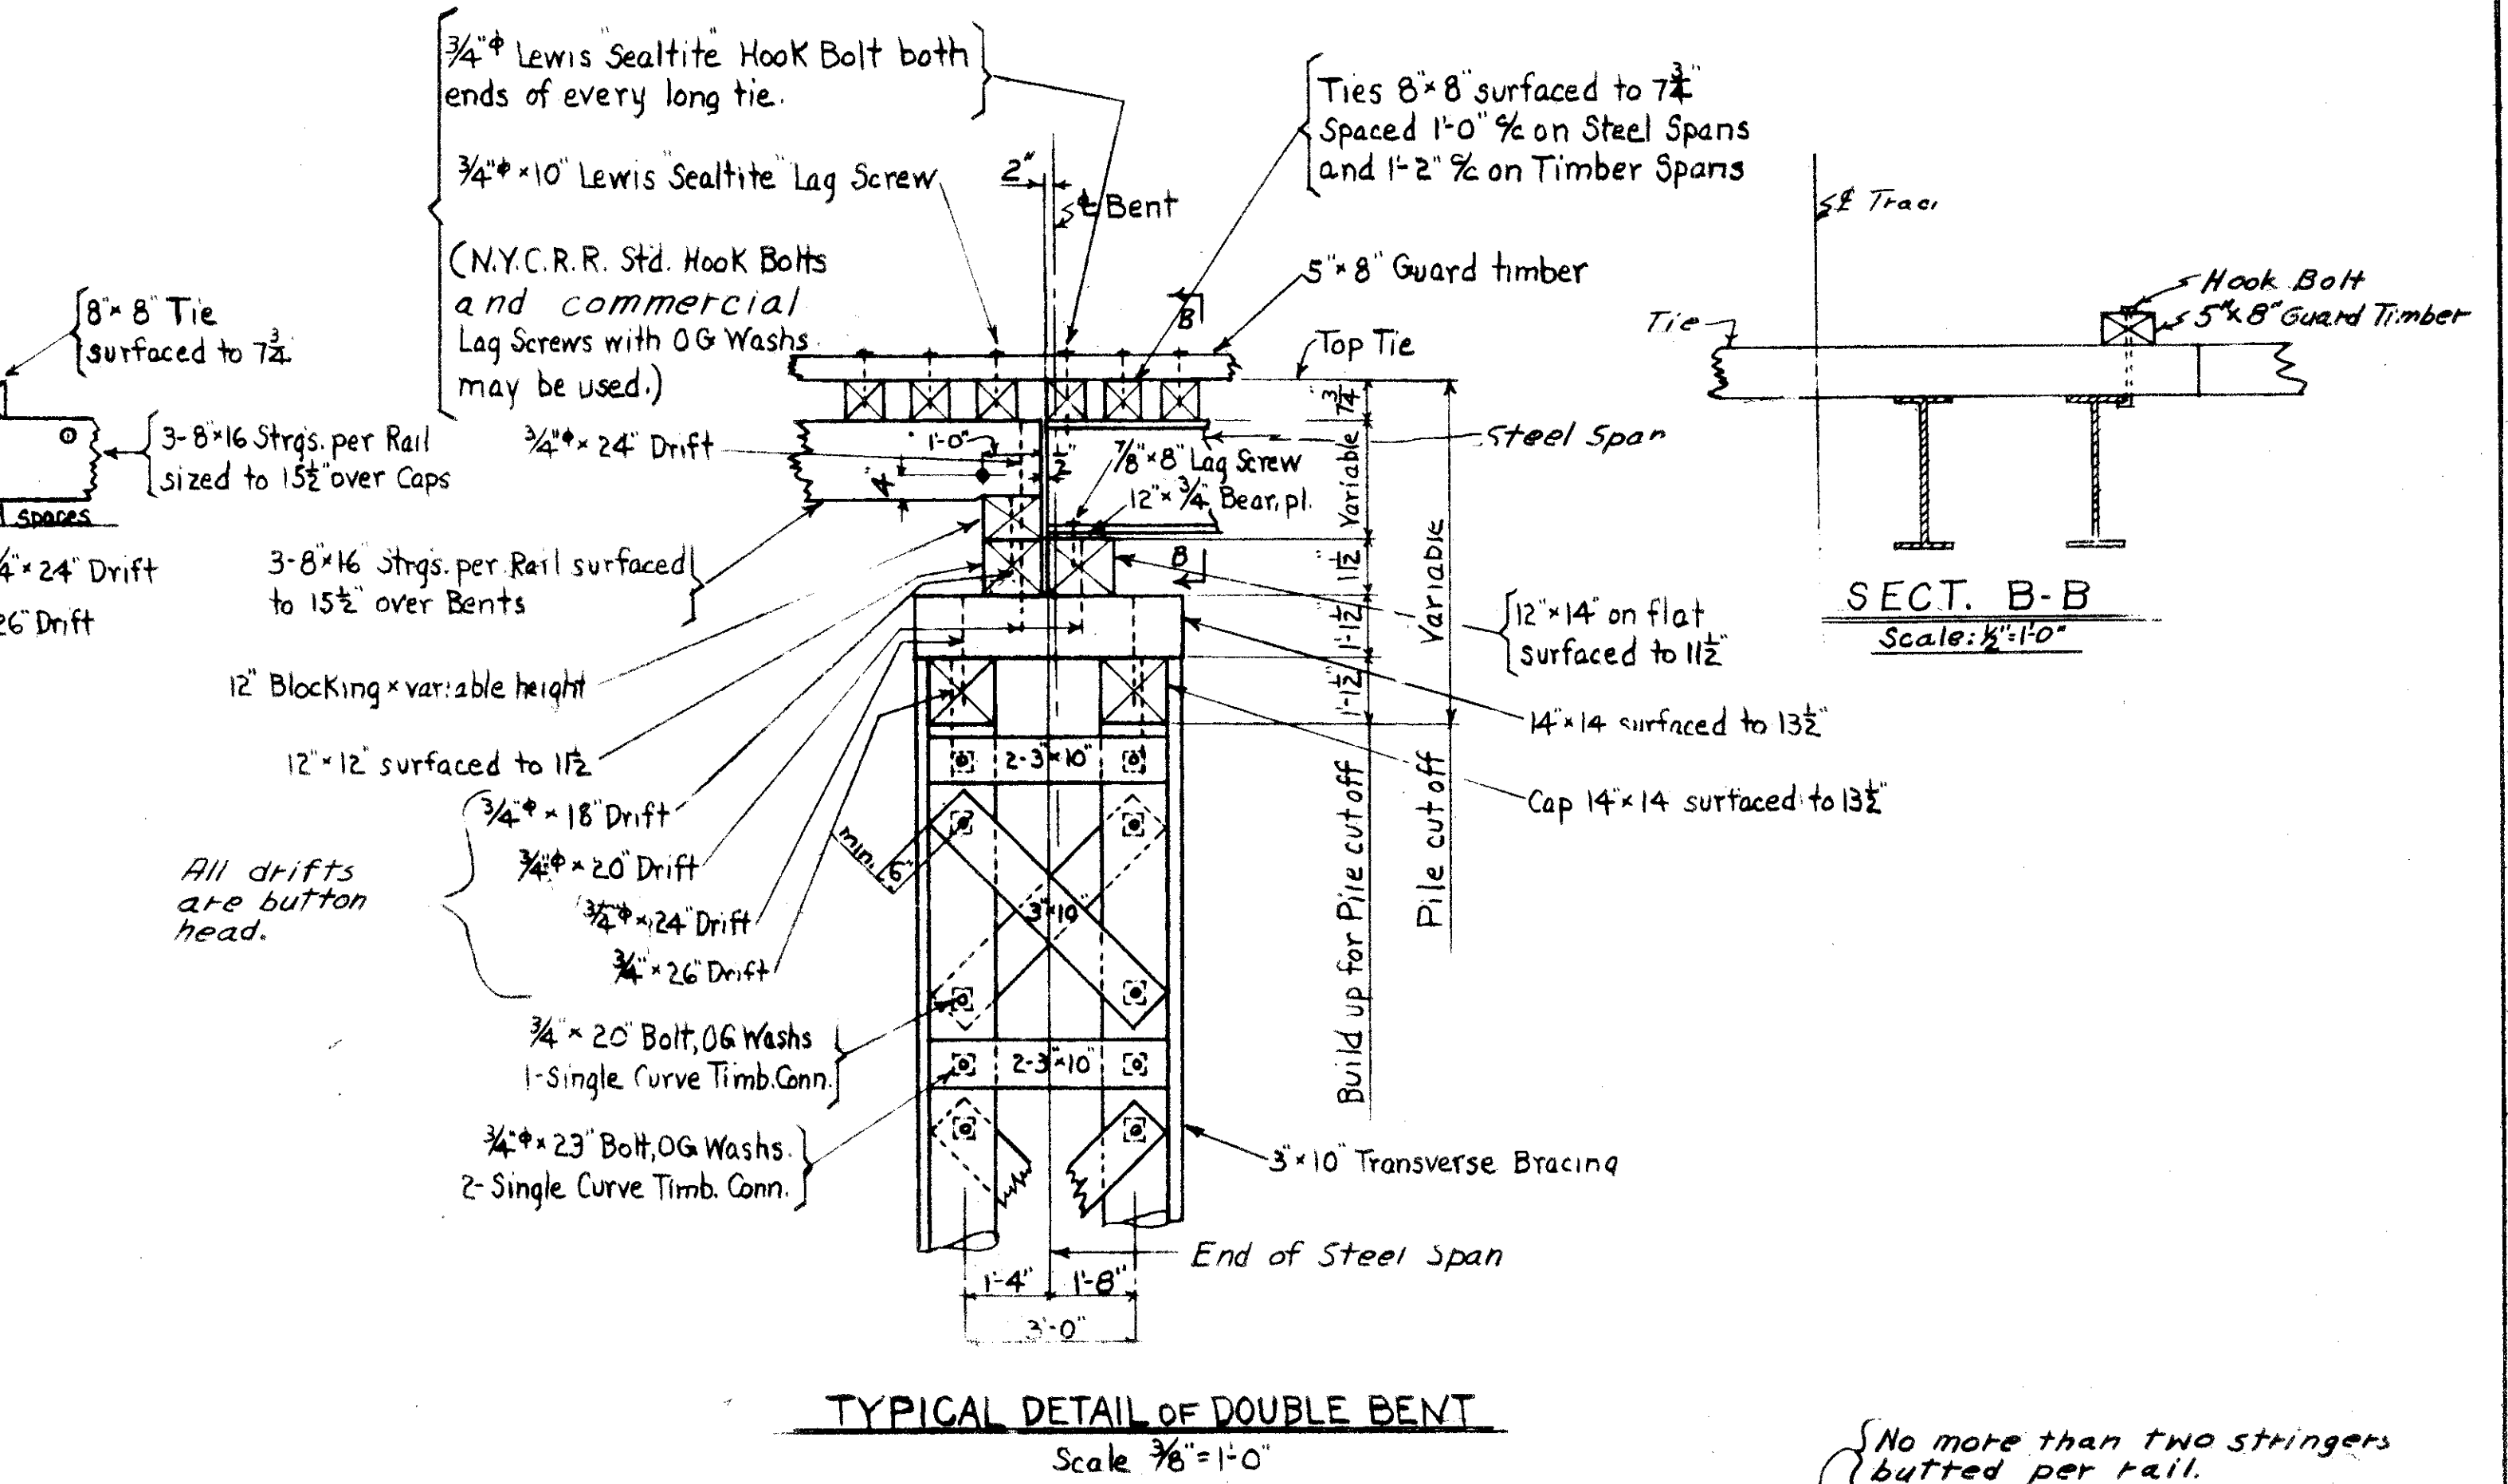 3/4"φ Lewis "Sealtite" Hook Bolt both
ends of every long tie.
3/4"φ × 10" Lewis "Sealtite" Lag Screw
(N.Y.C.R.R. Std. Hook Bolts
and commercial
Lag Screws with OG Washs
may be used.)
2"
℄ Bent
Ties 8"×8" surfaced to 7 3/4"
Spaced 1'-0" c/c on Steel Spans
and 1'-2" c/c on Timber Spans
5"×8" Guard timber
B
Top Tie
8"×8" Tie
surfaced to 7 3/4
3-8"×16 Strgs. per Rail
sized to 15 1/2" over Caps
spaces
3/4"φ × 24" Drift
1'-0"
4"
1/2"
7/8"×8" Lag Screw
12"×3/4" Bear. pl.
Steel Span
7 3/4"
Variable
11 1/2"
1'-1 1/2"
1'-1 1/2"
Variable
B
× 24" Drift
26" Drift
3-8"×16" Strgs. per Rail surfaced
to 15 1/2" over Bents
12" Blocking × variable height
12"×12" surfaced to 11 1/2
12"×14" on flat
surfaced to 11 1/2"
14"×14 surfaced to 13 1/2"
Cap 14"×14 surfaced to 13 1/2"
3/4"φ × 18" Drift
3/4"φ × 20" Drift
3/4"φ × 24" Drift
3/4" × 26" Drift
All drifts
are button
head.
min. 6"
2-3"×10"
3"×10"
2-3"×10"
Build up for Pile cut off
Pile cut off
3/4" × 20" Bolt, OG Washs
1-Single Curve Timb. Conn.
3/4"φ × 23" Bolt, OG Washs.
2-Single Curve Timb. Conn.
3"×10" Transverse Bracing
End of Steel Span
1'-4"
1'-8"
3'-0"
TYPICAL DETAIL OF DOUBLE BENT
Scale 3/8"=1'-0"
℄ Trac
Hook Bolt
5"×8" Guard Timber
Tie
SECT. B-B
Scale: 1/2"=1'-0"
No more than two stringers
butted per rail.